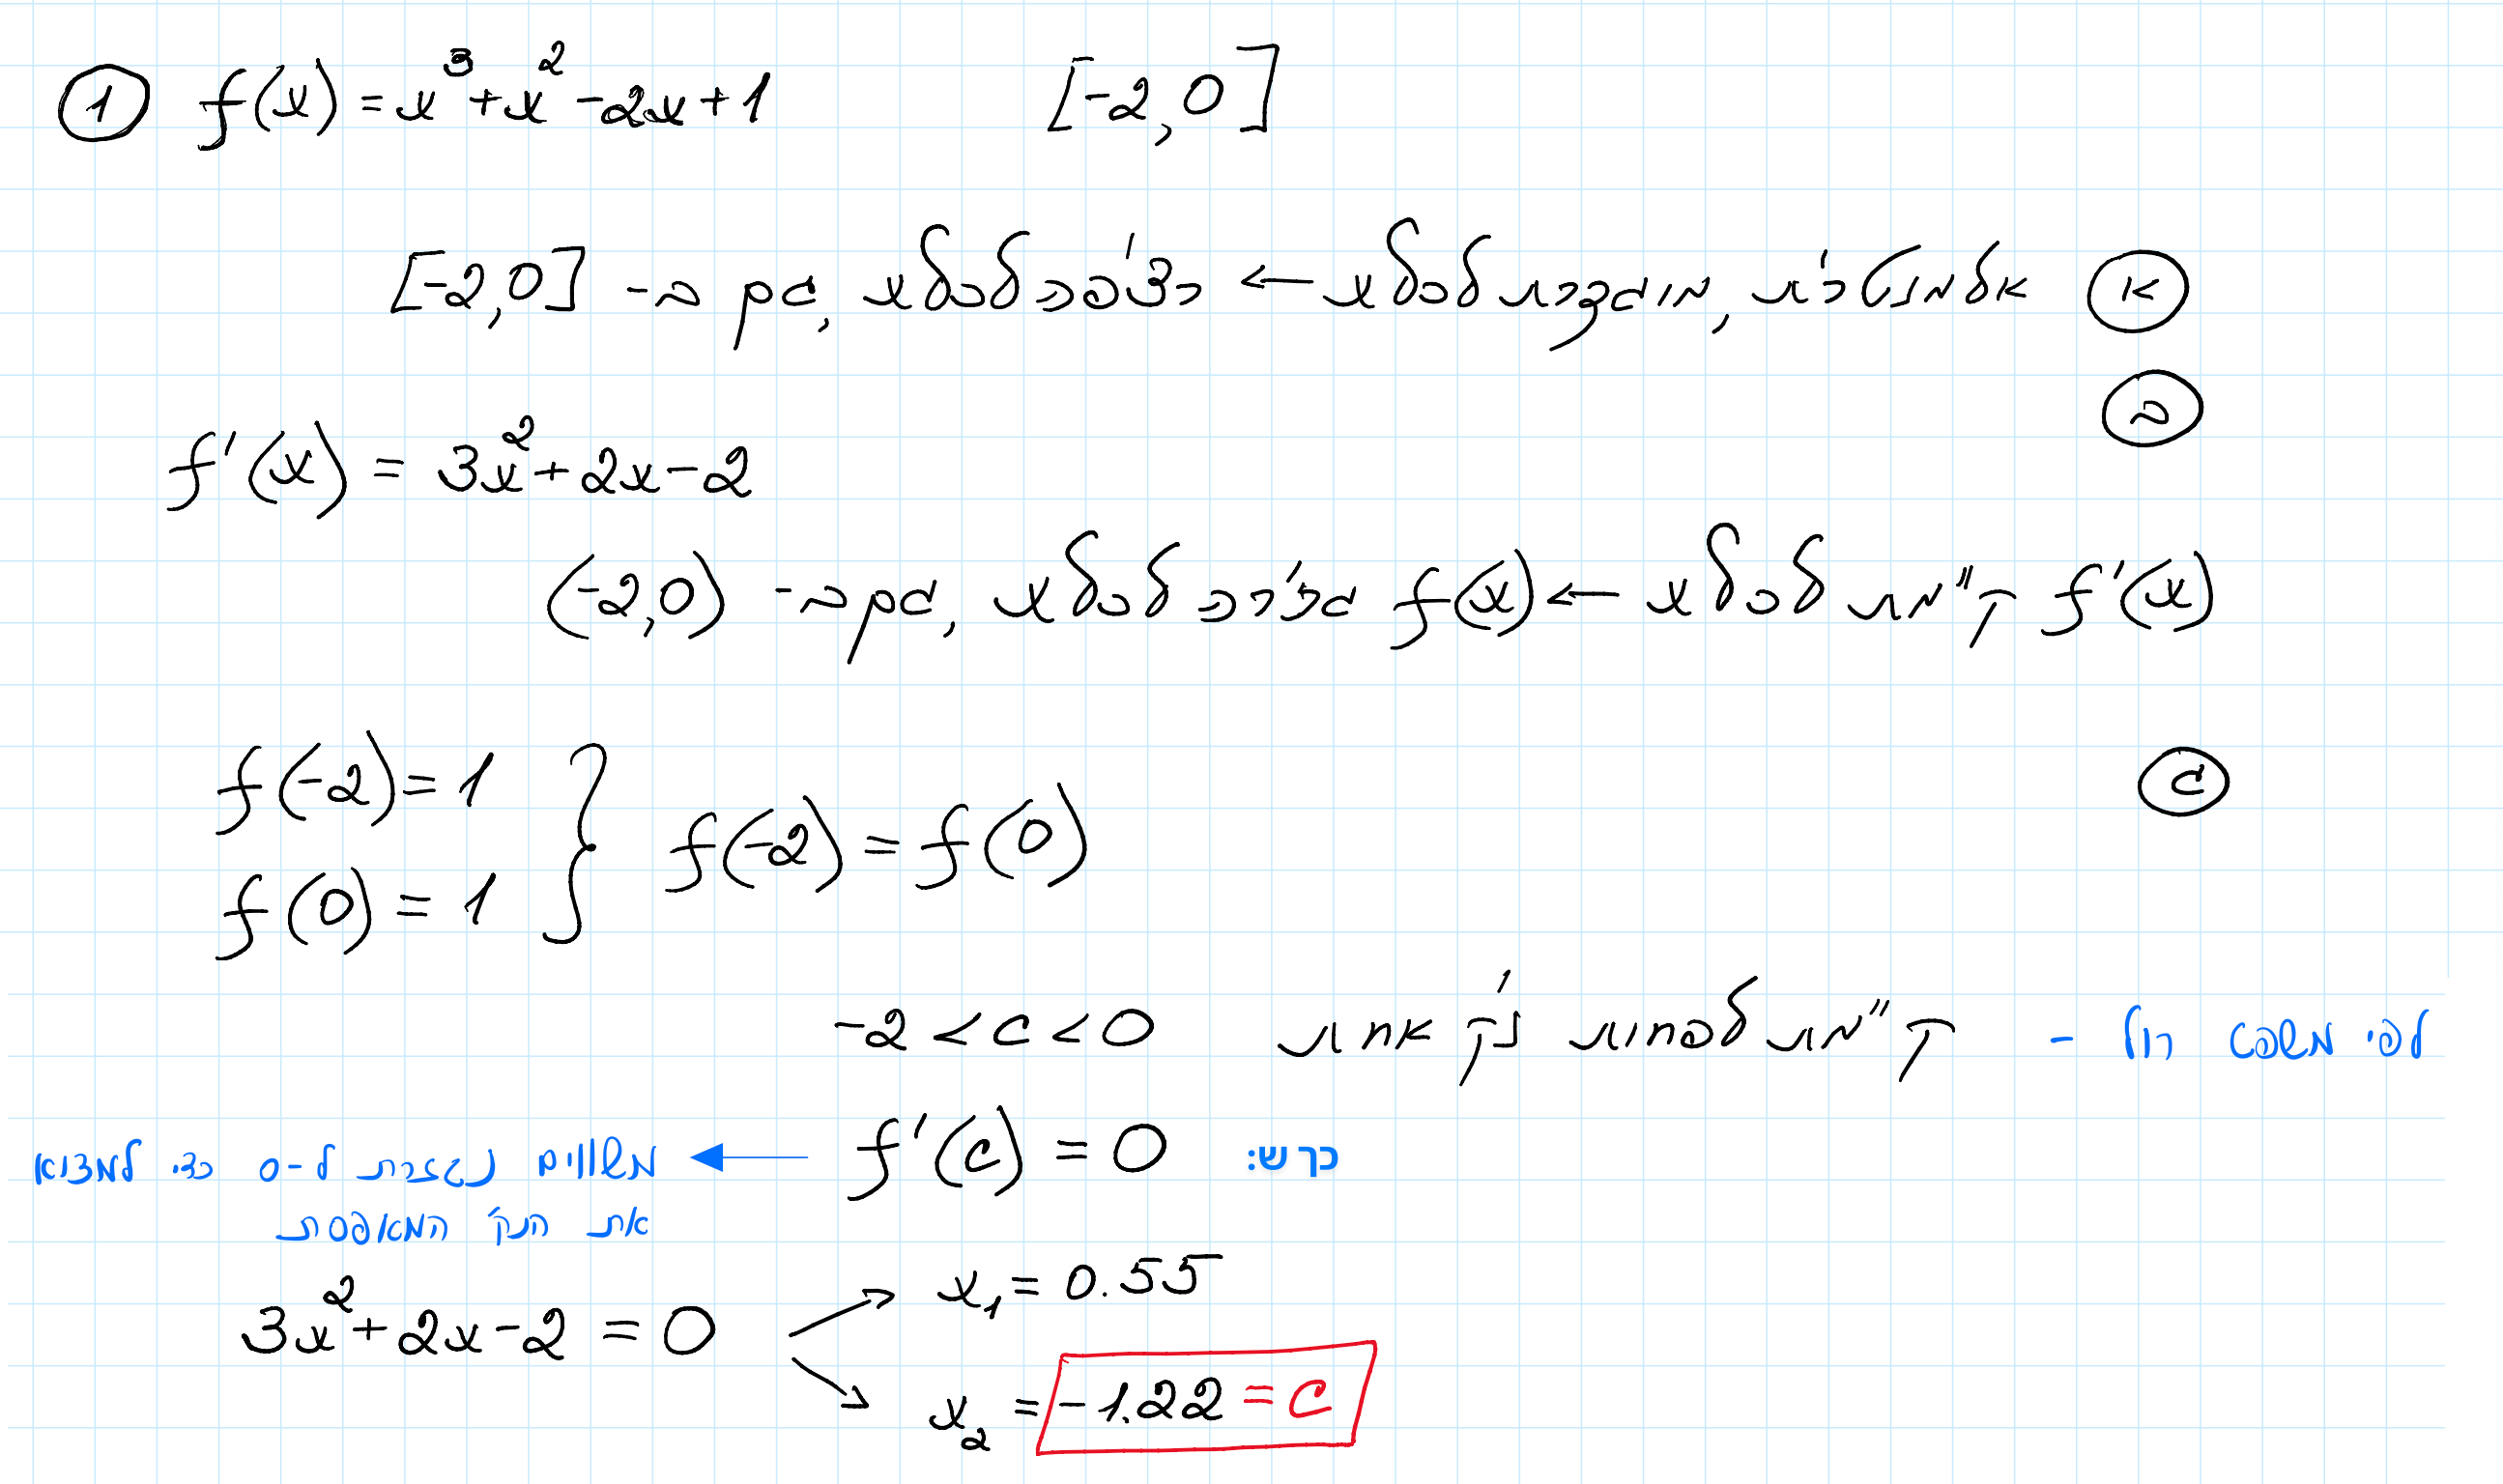 ① f(x) = x³ + x² - 2x + 1   [-2,0]
(א) אלמנטרית, מוגדרת לכל x ← רציפה לכל x, גם ב- [-2,0]
(ב)
f'(x) = 3x² + 2x - 2
f'(x) קיימת לכל x ← f(x) גזירה לכל x, גם ב- (-2,0)
(ג)
f(-2) = 1
f(0) = 1
} f(-2) = f(0)
לפי משפט רול - קיימת לפחות נק' אחת -2 < c < 0
כך ש: f'(c) = 0 ← משווים נגזרת ל-0 כדי למצוא
את הנק' המאפסת
3x² + 2x - 2 = 0
x₁ = 0.55
x₂ = -1.22 = c